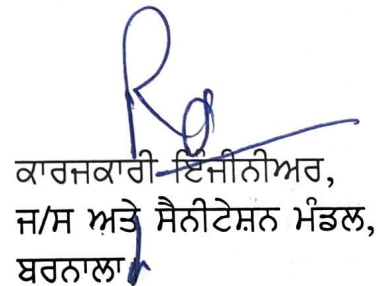 ਕਾਰਜਕਾਰੀ ਇੰਜੀਨੀਅਰ,
ਜ/ਸ ਅਤੇ ਸੈਨੀਟੇਸ਼ਨ ਮੰਡਲ,
ਬਰਨਾਲਾ